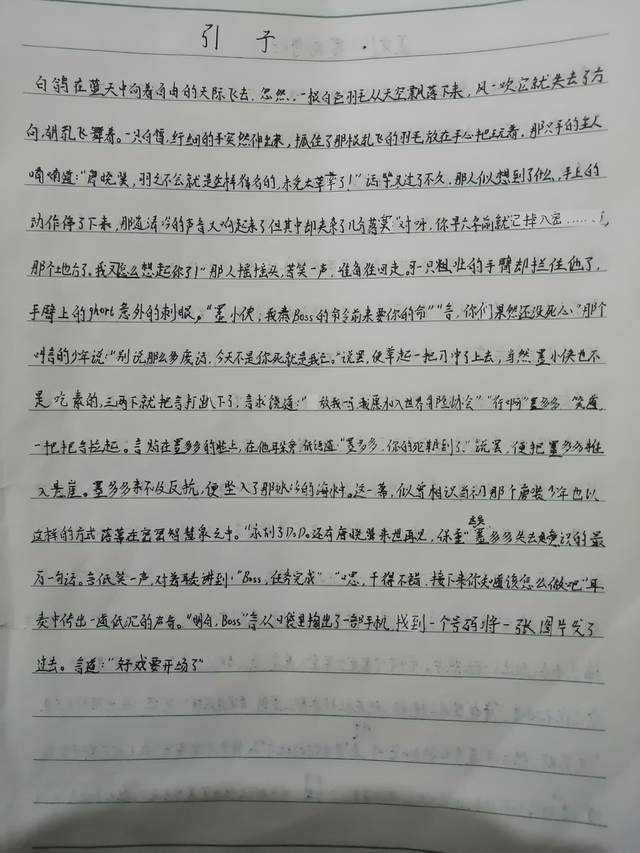 引子
白鸽在蓝天中向着自由的天际飞去。忽然,一根白色羽毛从天空飘落下来,风一吹它就失去了方
向,胡乱飞舞着。一只白皙,纤细的手突然伸出来,抓住了那根乱飞的羽毛放在手心把玩着,那只手的主人
喃喃道:“唐晓翼,羽之不会就是这样得名的,未免太草率了!”话毕又过了不久,那人似想到了什么,手上的
动作停了下来,那道清冷的声音又响起来了但其中却夹杂了几分落寞:“对呀,你早六年前就记掉入密……,
那个地方了。我又怎么想起你了!”那人摇摇头,苦笑一声,准备往回走。另一只粗壮的手臂却拦住他了,
手臂上的ghost意外的刺眼。“墨小侠,我奉Boss的命令前来要你的命”“音,你们果然还没死心”那个
叫音的少年说:“别说那么多废话,今天不是你死就是我亡。”说罢,便拿起一把刀冲了上去,当然墨小侠也不
是吃素的,三两下就把音打趴下了,音求饶道:“放我一马我愿加入世界冒险协会”“行啊”墨多多笑着
一把把音拉起。音趴在墨多多的肩上,在他耳旁低语道:“墨多多,你的死期到了。”说罢,便把墨多多推
入悬崖。墨多多来不及反抗,便坠入了那冰冷的海水中。这一幕,似曾相识当初那个唐装少年也以
这样的方式落幕在密密智慧泉之中。“永别了D.D。还有唐晓翼来世再见,保重”墨多多失去意识的最
后一句话。音低笑一声,对着耳麦讲到:“Boss,任务完成”“嗯,干得不错,接下来你知道该怎么做吧”耳
麦中传出一道低沉的声音。“明白,Boss”音从口袋里掏出了一部手机,找到一个号码将一张图片发了
过去。音道:“好戏要开场了”